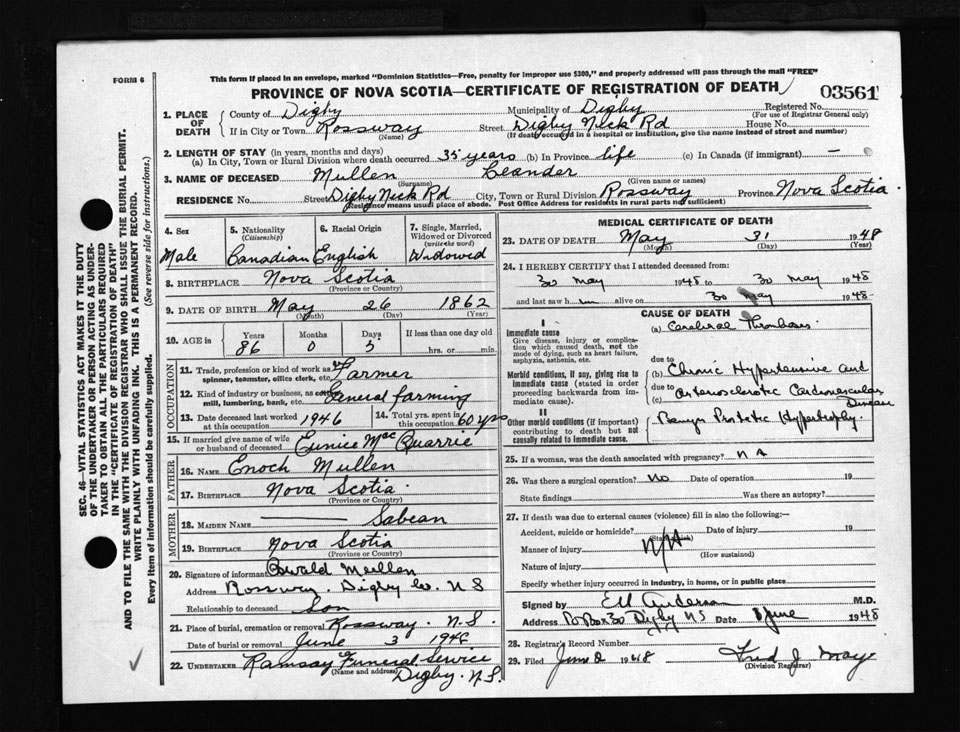 FORM 6
This form if placed in an envelope, marked "Dominion Statistics—Free, penalty for improper use $300," and properly addressed will pass through the mail "FREE"
PROVINCE OF NOVA SCOTIA—CERTIFICATE OF REGISTRATION OF DEATH
03561
SEC. 46—VITAL STATISTICS ACT MAKES IT THE DUTY
OF THE UNDERTAKER OR PERSON ACTING AS UNDER-
TAKER TO OBTAIN ALL THE PARTICULARS REQUIRED
IN THE "CERTIFICATE OF REGISTRATION OF DEATH"
AND TO FILE THE SAME WITH THE DIVISION REGISTRAR WHO SHALL ISSUE THE BURIAL PERMIT.
WRITE PLAINLY WITH UNFADING INK. THIS IS A PERMANENT RECORD.
Every item of information should be carefully supplied. (See reverse side for instructions.)
1. PLACE OF DEATH
County of Digby Municipality of Digby Registered No.
(For use of Registrar General only)
If in City or Town Rossway Street Digby Neck Rd House No.
(Name) (If death occurred in a hospital or institution, give the name instead of street and number)
2. LENGTH OF STAY (in years, months and days)
(a) In City, Town or Rural Division where death occurred 35 years (b) In Province life (c) In Canada (if immigrant) —
3. NAME OF DECEASED Mullen Leander
(Surname) (Given name or names)
RESIDENCE No. Street Digby Neck Rd City, Town or Rural Division Rossway Province Nova Scotia.
(Residence means usual place of abode. Post Office Address for residents in rural parts not sufficient)
4. Sex
Male
5. Nationality
(Citizenship)
Canadian
6. Racial Origin
English
7. Single, Married, Widowed or Divorced
(write the word)
Widowed
8. BIRTHPLACE Nova Scotia
(Province or Country)
9. DATE OF BIRTH May 26 1862
(Month) (Day) (Year)
10. AGE in Years Months Days If less than one day old
86 0 5 hrs. or min.
OCCUPATION
11. Trade, profession or kind of work as spinner, teamster, office clerk, etc. Farmer
12. Kind of industry or business, as cotton mill, lumbering, bank, etc. General farming
13. Date deceased last worked at this occupation 1946
14. Total yrs. spent in this occupation 60 yrs
15. If married give name of wife or husband of deceased Eunice MacQuarrie
FATHER
16. NAME Enoch Mullen
17. BIRTHPLACE Nova Scotia.
(Province or Country)
MOTHER
18. MAIDEN NAME —— Sabean
19. BIRTHPLACE Nova Scotia
(Province or Country)
20. Signature of informant Oswald Mullen
Address Rossway. Digby Co. N S
Relationship to deceased Son
21. Place of burial, cremation or removal Rossway. N.S.
Date of burial or removal June 3 1948
22. UNDERTAKER Ramsay Funeral Service
(Name and address) Digby. N.S.
MEDICAL CERTIFICATE OF DEATH
23. DATE OF DEATH May 31 1948
(Month) (Day) (Year)
24. I HEREBY CERTIFY that I attended deceased from:
30 May 1948 to 30 May 1948
and last saw him alive on 30 May 1948
CAUSE OF DEATH
I
Immediate cause
Give disease, injury or complication which caused death, not the mode of dying, such as heart failure, asphyxia, asthenia, etc.
(a) Cerebral Thrombosis.
due to
Morbid conditions, if any, giving rise to immediate cause (stated in order proceeding backwards from immediate cause).
(b) Chronic Hypertensive and
due to
(c) arteriosclerotic Cardiovascular Disease
II
Other morbid conditions (if important) contributing to death but not causally related to immediate cause.
Benign Prostatic Hypertrophy.
25. If a woman, was the death associated with pregnancy? N A
26. Was there a surgical operation? No Date of operation 19
State findings Was there an autopsy?
27. If death was due to external causes (violence) fill in also the following:—
Accident, suicide or homicide? Date of injury 19
(State which)
Manner of injury N/A
(How sustained)
Nature of injury
Specify whether injury occurred in industry, in home, or in public place
Signed by Anderson M.D.
Address PO Box 30 Digby NS Date 1 June 1948
28. Registrar's Record Number
29. Filed June 2 1948 Fred J. May
(Division Registrar)